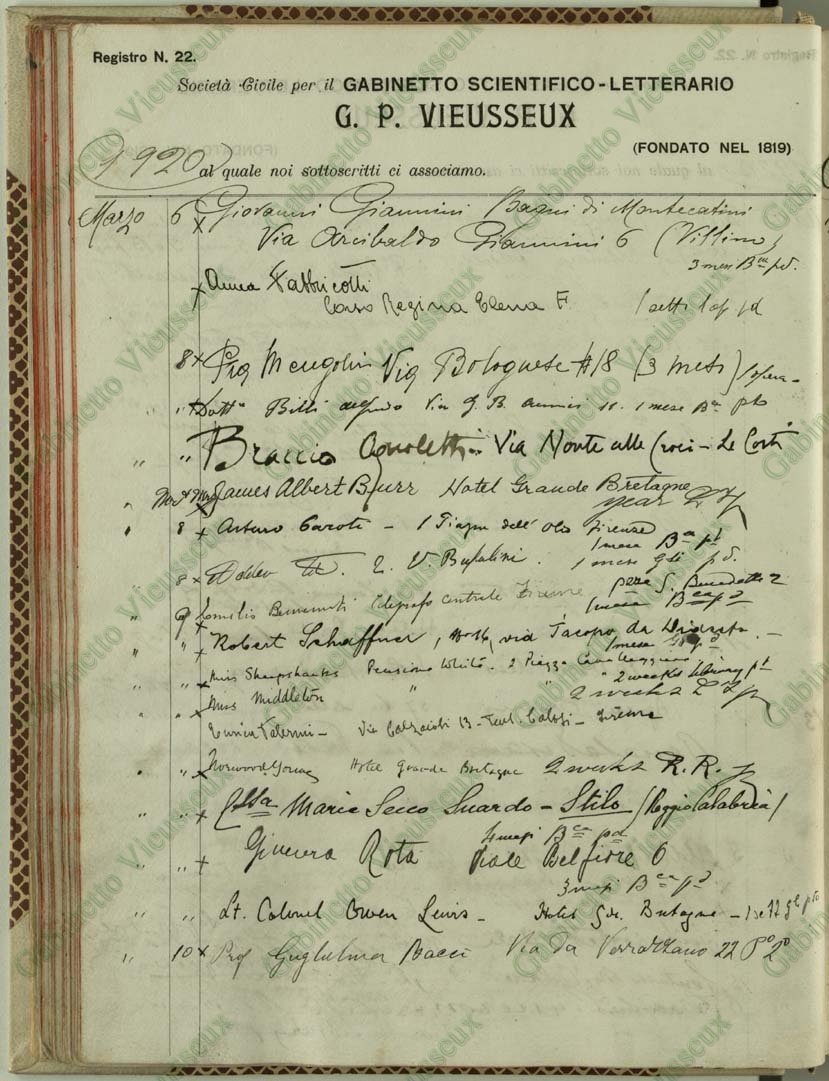 Registro N. 22.
Società Civile per il GABINETTO SCIENTIFICO-LETTERARIO
G. P. VIEUSSEUX
(FONDATO NEL 1819)
1920 al quale noi sottoscritti ci associamo.
Marzo 6 x Giovanni Giannini Bagni di Montecatini
Via Arcibaldo Giannini 6 (Villino)
3 mesi Bca pd.
x Anna Fabbricotti
Corso Regina Elena F. 1 sett. 1 op pd
8 x Mengolini Via Bolognese 118 (3 mesi) 1 opera
" x Dott. Billi Via G. B. 1 mese Bca pto
" " Braccio Agnoletti Via Monte alle Croci - Le Corti
" Mr & Mrs James Albert Burr Hotel Grande Bretagne
year
" 8 x Arturo Caroti - 1 Piazza dell' Olio Firenze
1 mese Bca pd
8 x V. Bufalini. 1 mese pd.
" 9 x Benvenuti Telegrafo Centrale Firenze pzza S. Benedetto 2
1 mese Bca pd
" " x Robert Schaffner, via Jacopo da Diacceto. -
1 mese
" " x Miss Sheepshanks Pensione White. 2 Piazza Cavalleggieri
" 2 weeks library pt
" " x Miss Middleton " " 2 weeks
Enrica Palermi - Via Calzaioli 13 - Firenze
" " x Norwood Young Hotel Grande Bretagne 2 weeks R. R.
" " x Ctssa Maria Secco Suardo - Stilo (Reggio Calabria)
4 mesi Bca pd
" " x Ginevra Rota Viale Belfiore 6
3 mesi Bca pd
" " Lt. Colonel Owen Lewis - Hotel Gde. Bretagne -
" 10 x Prof Guglielmo Bacci Via Da Verrazzano 22 Po 2o
Gabinetto Vieusseux